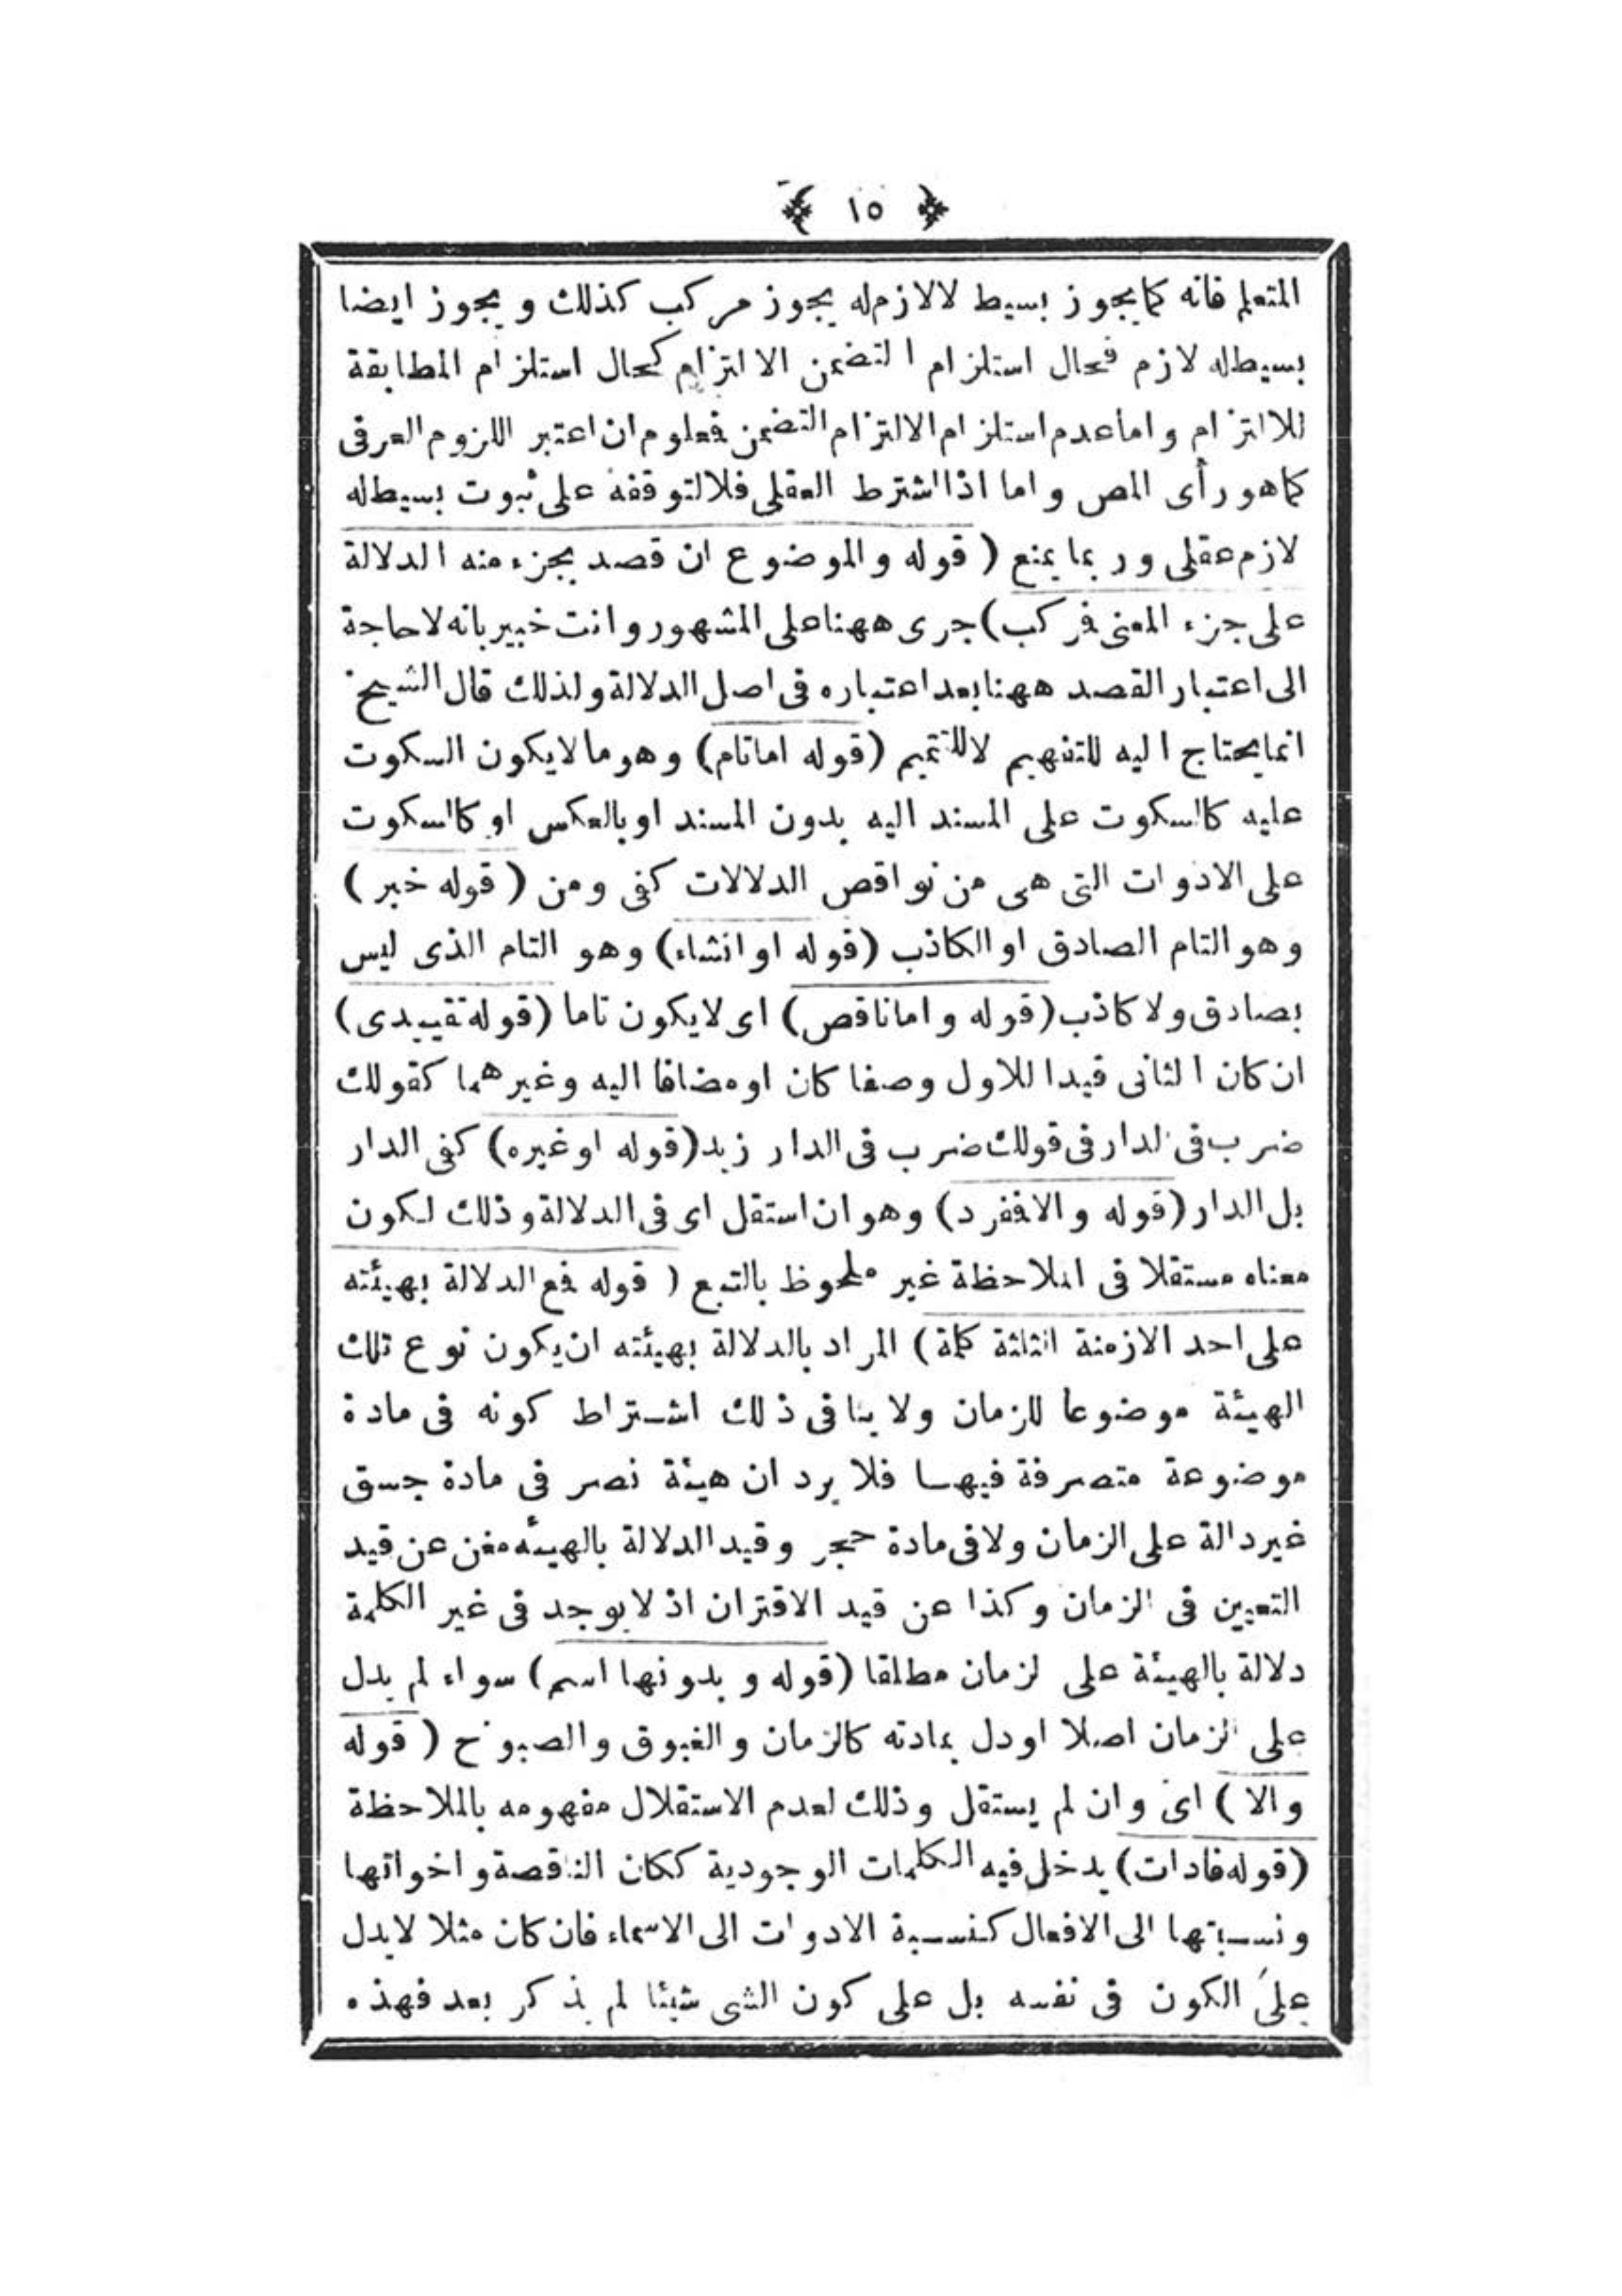 ﴿ ١٥ ﴾
المتعلم فانه كما يجوز بسيط لا لازم له يجوز مركب كذلك ويجوز ايضا
بسيط له لازم فحال استلزام التضمن الاالتزام كحال استلزام المطابقة
للالتزام واما عدم استلزام الالتزام التضمن فمعلوم ان اعتبر اللزوم العرفى
كما هو رأى المص واما اذا اشترط العقلى فلا لتوقفه على ثبوت بسيط له
لازم عقلى وربما يمنع ( قوله والموضوع ان قصد بجزء منه الدلالة
على جزء المعنى فركب) جرى ههنا على المشهور وانت خبير بانه لا حاجة
الى اعتبار القصد ههنا بعد اعتباره فى اصل الدلالة ولذلك قال الشيخ
انما يحتاج اليه للتفهيم لا للتتميم (قوله اما تام) وهو ما لا يكون السكوت
عليه كالسكوت على المسند اليه بدون المسند او بالعكس او كالسكوت
على الادوات التى هى من نواقص الدلالات كفى ومن ( قوله خبر )
وهو التام الصادق او الكاذب (قوله او انشاء) وهو التام الذى ليس
بصادق ولا كاذب (قوله واما ناقص) اى لا يكون تاما (قوله تقييدى)
ان كان الثانى قيدا للاول وصفا كان او مضافا اليه وغيرهما كقولك
ضرب فى الدار فى قولك ضرب فى الدار زيد (قوله او غيره) كفى الدار
بل الدار (قوله والا فمفرد) وهو ان استقل اى فى الدلالة وذلك لكون
معناه مستقلا فى الملاحظة غير ملحوظ بالتبع ( قوله فمع الدلالة بهيئته
على احد الازمنة الثلثة كلمة) المراد بالدلالة بهيئته ان يكون نوع تلك
الهيئة موضوعا للزمان ولا ينافى ذلك اشتراط كونه فى مادة
موضوعة متصرفة فيها فلا يرد ان هيئة نصر فى مادة جسق
غير دالة على الزمان ولا فى مادة حجر وقيد الدلالة بالهيئه مغن عن قيد
التعيين فى الزمان وكذا عن قيد الاقتران اذ لا يوجد فى غير الكلمة
دلالة بالهيئة على لزمان مطلقا (قوله وبدونها اسم) سواء لم يدل
على الزمان اصلا او دل بمادته كالزمان والغبوق والصبوح ( قوله
والا ) اى وان لم يستقل وذلك لعدم الاستقلال مفهومه بالملاحظة
(قوله فادات) يدخل فيه الكلمات الوجودية ككان الناقصة واخواتها
ونسبتها الى الافعال كنسبة الادوات الى الاسماء فان كان مثلا لا يدل
على الكون فى نفسه بل على كون الشى شيئا لم يذكر بعد فهذه